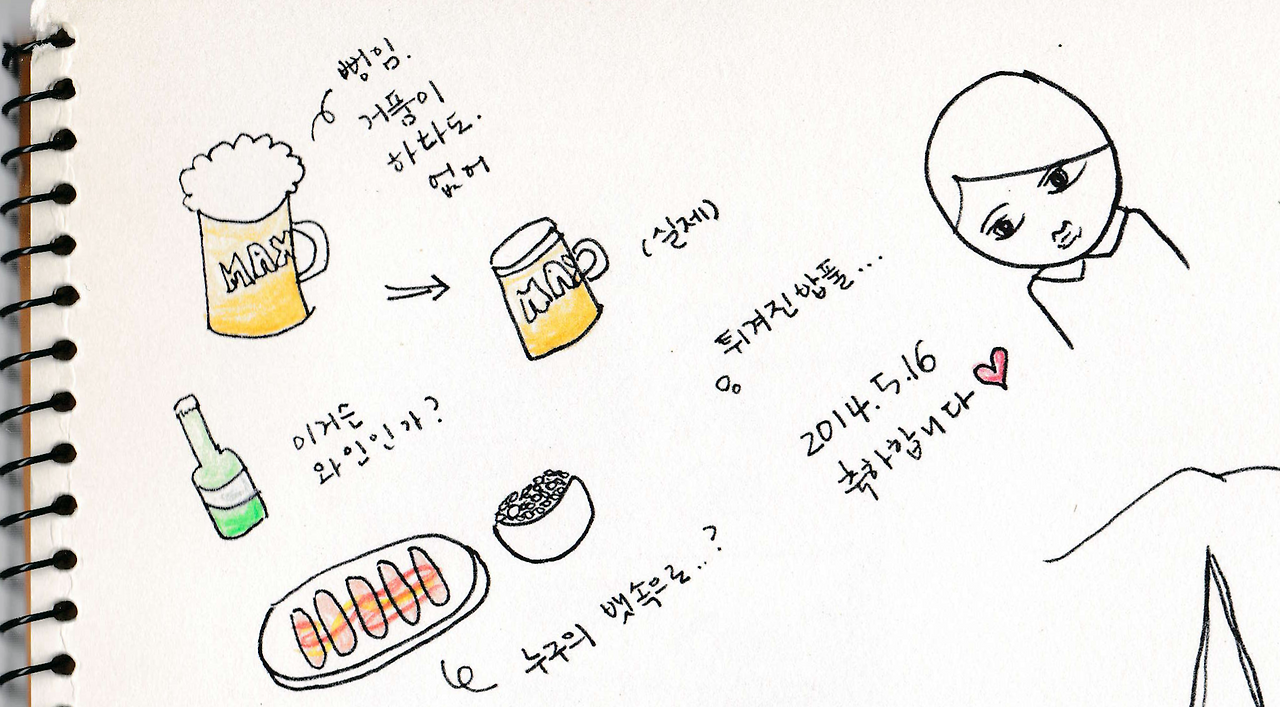 뻥임.
거품이
하나도.
없어
MAX
MAX
(실제)
튀겨진 밥풀...
2014.5.16
축하합니다
이거슨
와인인가?
누구의 뱃속으로..?